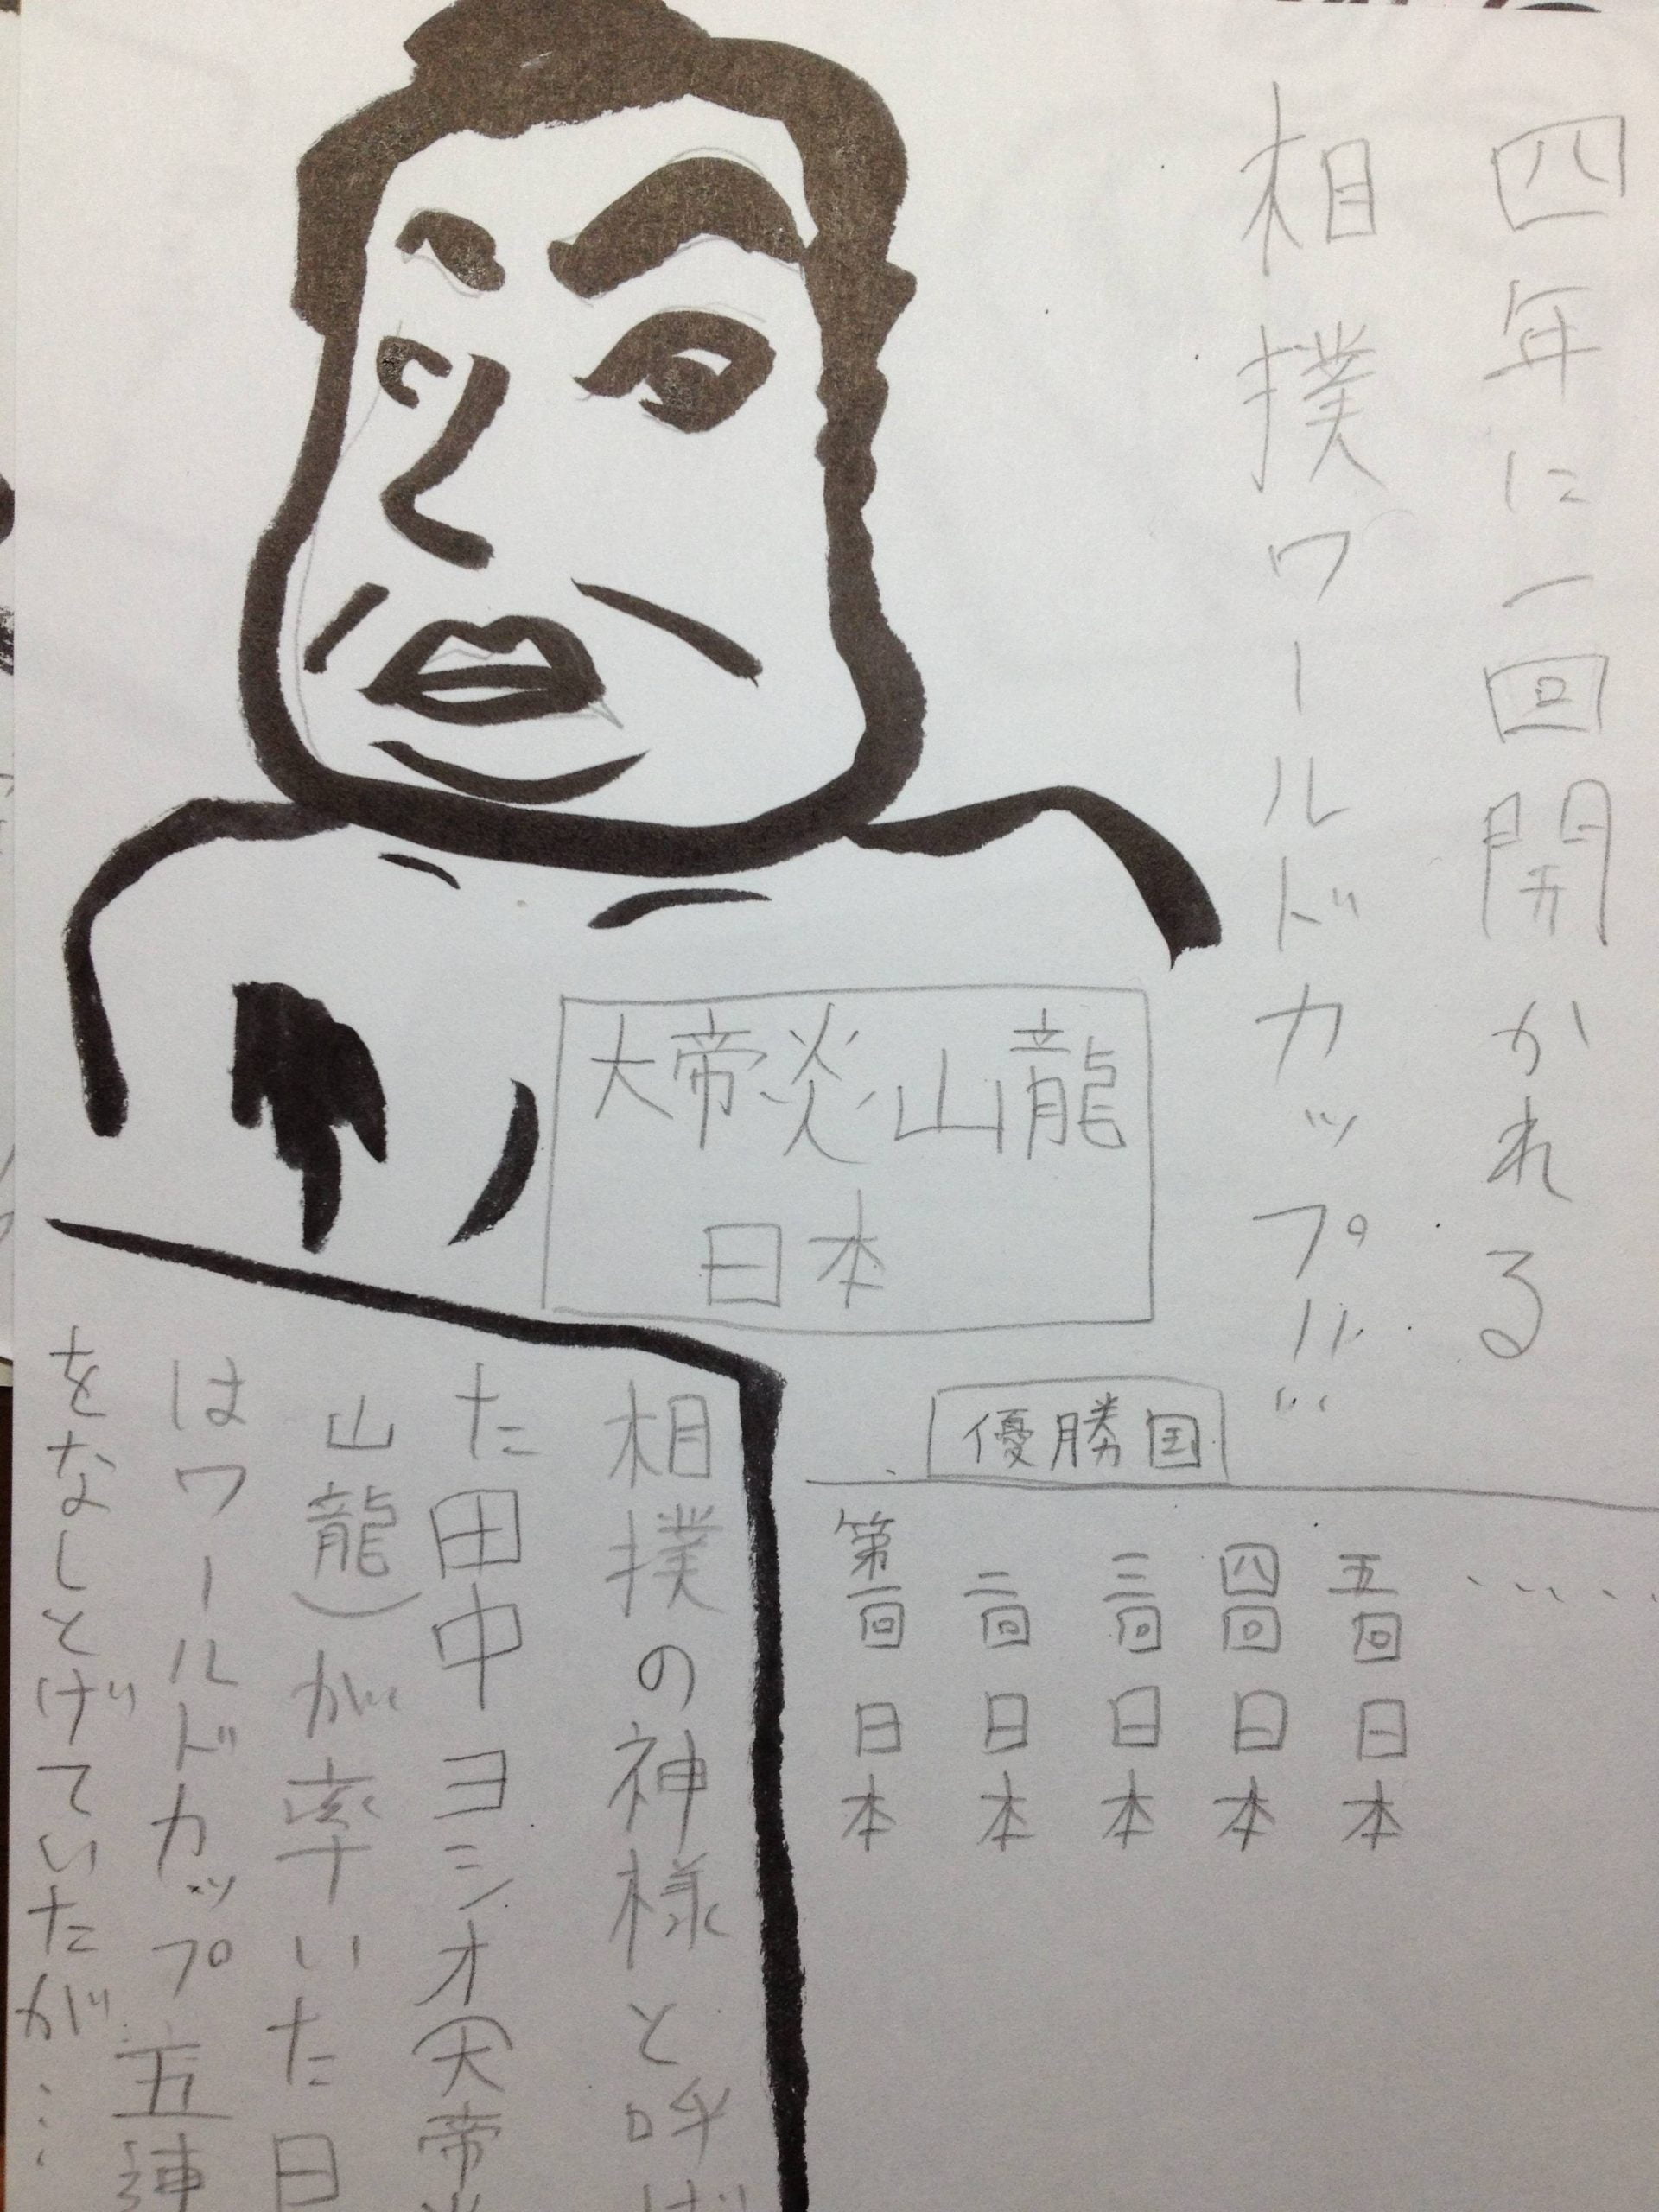 四年に一回開かれる
相撲ワールドカップ!!…
大帝炎山龍
日本
優勝国
第一回 日本
二回 日本
三回 日本
四回 日本
五回 日本
……
相撲の神様と呼ば
た田中ヨシオ(大帝
山龍)が率いた日
はワールドカップ五連
をなしとげていたが……